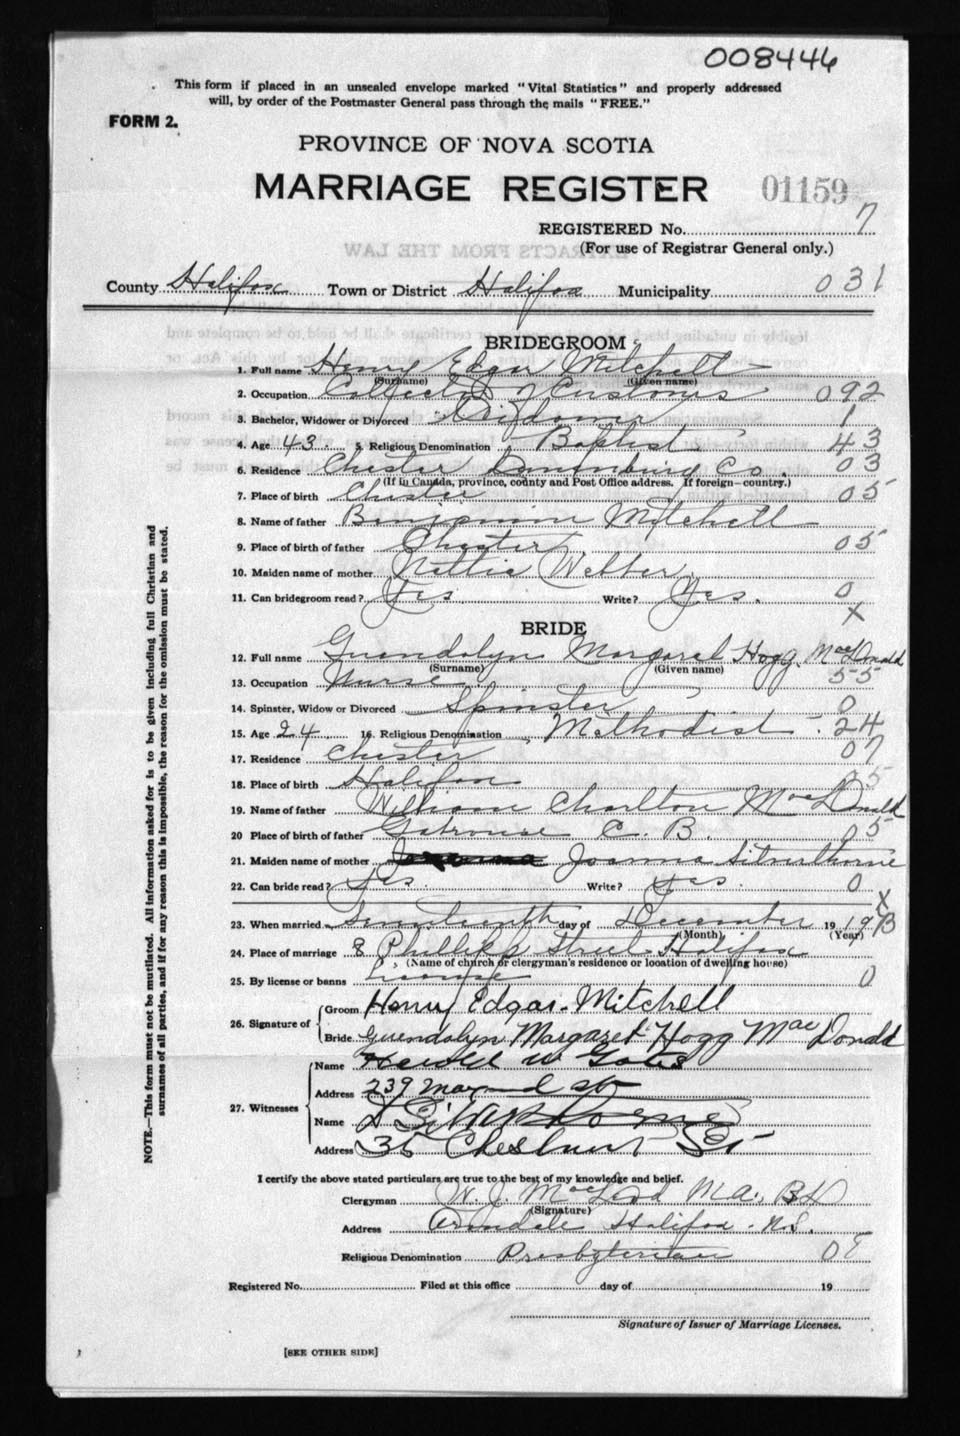 008446
This form if placed in an unsealed envelope marked "Vital Statistics" and properly addressed
will, by order of the Postmaster General pass through the mails "FREE."
FORM 2.
PROVINCE OF NOVA SCOTIA
MARRIAGE REGISTER 01159
REGISTERED No. 7
(For use of Registrar General only.)
County Halifax Town or District Halifax Municipality 031
BRIDEGROOM
1. Full name Henry Edgar Mitchell
(Surname) (Given name)
2. Occupation Collector of Customs 092
3. Bachelor, Widower or Divorced Widower 1
4. Age 43. 5. Religious Denomination Baptist 43
6. Residence Chester Lunenburg Co. 03
(If in Canada, province, county and Post Office address. If foreign—country.)
7. Place of birth Chester 05
8. Name of father Benjamin Mitchell
9. Place of birth of father Chester 05
10. Maiden name of mother Nettie Webber
11. Can bridegroom read? Yes. Write? Yes. 0
X
BRIDE
12. Full name Gwendolyn Margaret Hogg MacDonald
(Surname) (Given name)
13. Occupation Nurse 55
14. Spinster, Widow or Divorced Spinster 0
15. Age 24 16. Religious Denomination Methodist 24
17. Residence Chester 07
18. Place of birth Halifax 05
19. Name of father William Charlton MacDonald
20 Place of birth of father Gabrouse C. B. 05
21. Maiden name of mother Joanna Silverthorne
22. Can bride read? Yes. Write? Yes. 0
X
23. When married Seventeenth day of December 19 19
(Month) (Year)
24. Place of marriage 8 Phillips Street Halifax
(Name of church or clergyman's residence or location of dwelling house)
25. By license or banns License 0
26. Signature of Groom Henry Edgar Mitchell
Bride Gwendolyn Margaret Hogg MacDonald
27. Witnesses
Name Harold W Gates
Address 239 Maynard St
Name Silverthorne
Address 35 Chestnut St
I certify the above stated particulars are true to the best of my knowledge and belief.
Clergyman W. J. MacLeod M.A., B.D
(Signature)
Address Armdale Halifax. N.S.
Religious Denomination Presbyterian
Registered No. Filed at this office day of 19
Signature of Issuer of Marriage Licenses.
[SEE OTHER SIDE]
NOTE.—This form must not be mutilated. All information asked for is to be given including full Christian and
surnames of all parties, and if for any reason this is impossible, the reason for the omission must be stated.